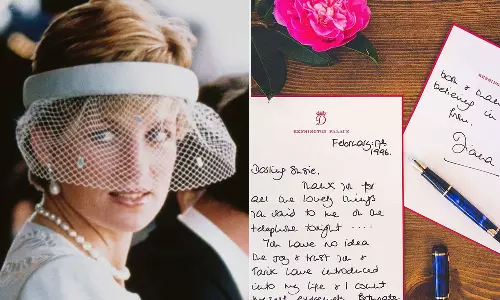 D
KENSINGTON PALACE
February 17th
1996.
Darling Susie,
Thank you for
all the lovely things
you said to me on the
telephone tonight ....
You have no idea
the joy & trust you &
Tarik have introduced
into my life & I count
myself extremely fortunate
KENSIN
both &
believing in
Diana